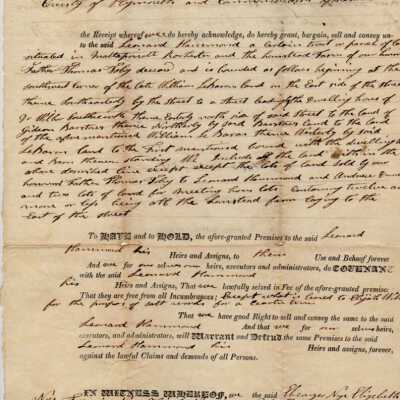 County of Plymouth and Commonwealth
the Receipt whereof we do hereby acknowledge, do hereby grant, bargain, sell and convey un-
to the said Leonard Hammond a certain tract or parcel of la
situated in Mattapoisett Rochester and the homestead Farm of our hono
Father Thomas Toby deceas and is bounded as follows beginning at the
southwest corner of the late William LeBarons land on the East side of the street
thence Southwesterly by the street to a street leading the dwelling house of
Southerly thence Easterly side of said street to the land of
Gideon Barstow thence Northerly by said Barstows land to the land
of the afore mentioned William Le Baron thence Westerly by said
LeBarons land to the first mentioned bound with the dwelling h
and Barn thereon standing to Include all the land within the
above described line except the lots of land sold by our
honoured Father Thomas Toby to Leonard Hammond and Andrew
and two lots of land for meeting house lots Containing twelve acres
more or less being all the homestead farm laying to the
East of the street
To HAVE and to HOLD, the afore-granted Premises to the said Leonard
Hammond his Heirs and Assigns, to their Use and Behoof forever
And we for our selves our heirs, executors and administrators, do COVENANT
with the said Leonard Hammond
his Heirs and Assigns, That we lawfully seized in Fee of the afore-granted premise
That they are free from all Incumbrances; Except what is leased to Elijah Wil
for the purpose of salt works for a certain time
That we have good Right to sell and convey the same to the said
Leonard Hammond And that we for our selves heirs,
executors, and administrators, will Warrant and Defend the same Premises to the said
Leonard Hammond his Heirs and assigns, forever,
against the lawful Claims and demands of all Persons.
IN WITNESS WHEREOF, we the said Ebenezer Nye Elizabeth